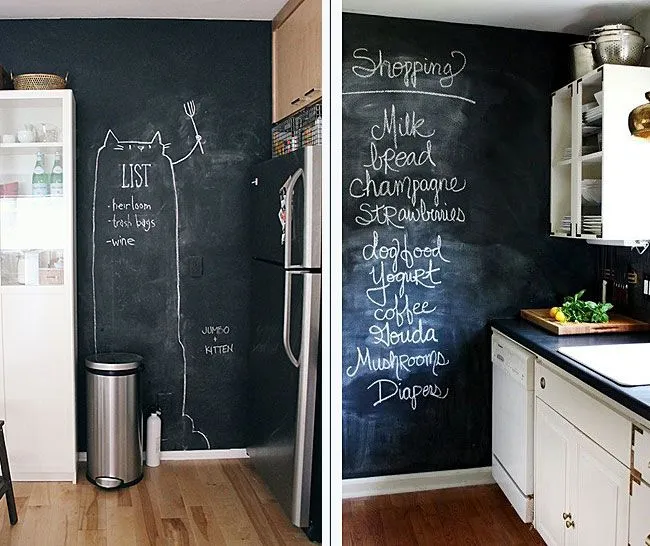 LIST
- heirloom
- trash bags
- wine
JUMBO
+
KITTEN
Shopping
Milk
bread
champagne
Strawberries
dogfood
Yogurt
coffee
Gouda
Mushrooms
Diapers